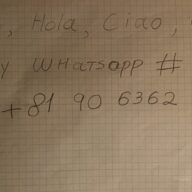 , Hola, Ciao,
y WHatsapp #
+81 90 6362